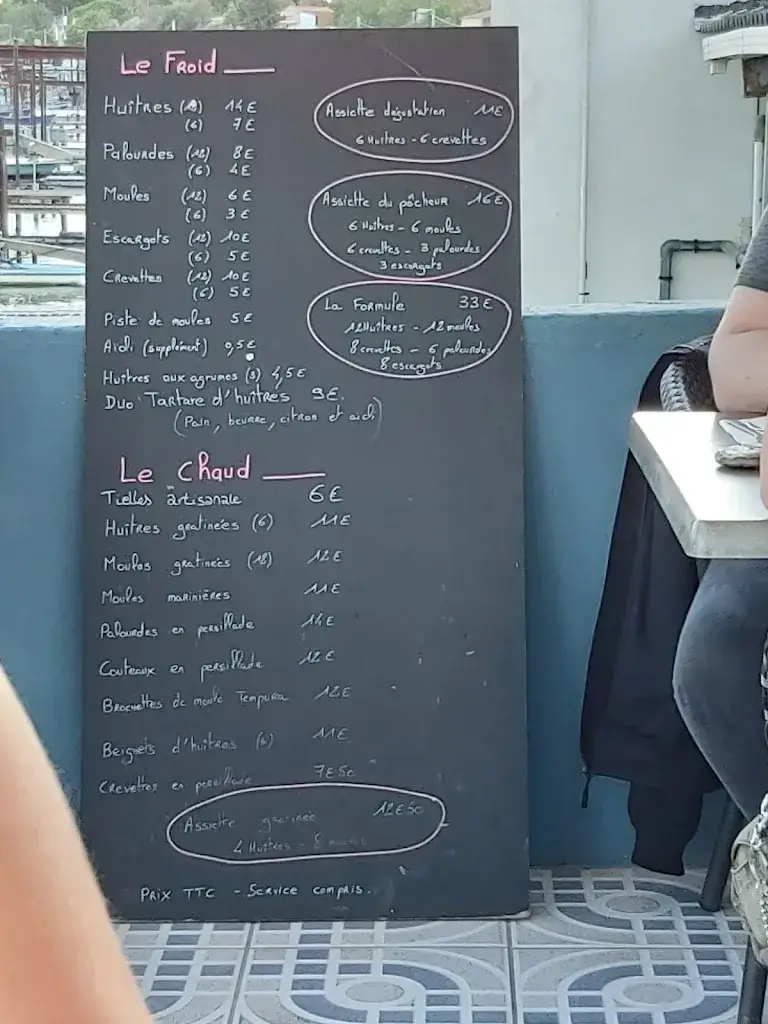 Le Froid
Huîtres (12) 14€
(6) 7€
Palourdes (12) 8€
(6) 4€
Moules (12) 6€
(6) 3€
Escargots (12) 10€
(6) 5€
Crevettes (12) 10€
(6) 5€
Piste de moules 5€
Aïoli (supplément) 0,5€
Huîtres aux agrumes (3) 4,5€
Duo Tartare d'huîtres 9€.
(Pain, beurre, citron et aioli)
Assiette dégustation 11€
6 Huîtres - 6 crevettes
Assiette du pêcheur 16€
6 Huîtres - 6 moules
6 crevettes - 3 palourdes
3 escargots
La Formule 33€
12 Huîtres - 12 moules
8 crevettes - 6 palourdes
8 escargots
Le Chaud
Tielles artisanale 6€
Huîtres gratinées (6) 11€
Moules gratinées (18) 12€
Moules marinières 11€
Palourdes en persillade 14€
Couteaux en persillade 12€
Brochettes de moule Tempura 12€
Beignets d'huîtres (6) 11€
Crevettes en persillade 7€50
Assiette gratinée 12€50
4 Huîtres - 8 moules
Prix TTC - Service compris.